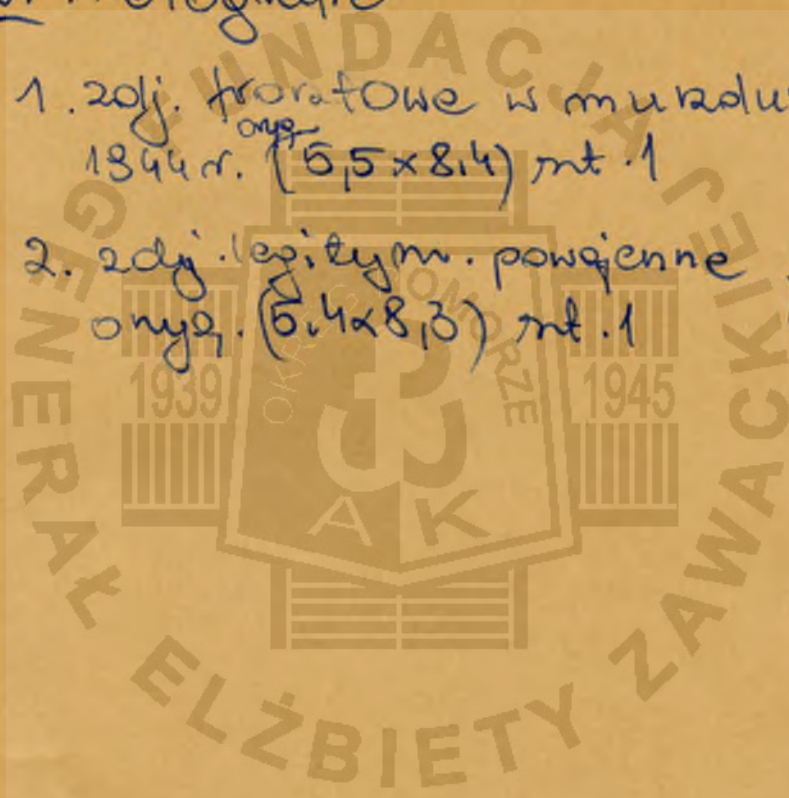 1. zdj. frontowe w mundu
oryg.
1944 r. (5,5 x 8,4) szt. 1
2. zdj. legitym. powojenne
oryg. (5,4 x 8,3) szt. 1
FUNDACJA GENERAŁ ELŻBIETY ZAWACKIEJ
1939
1945
OKRĘG POMORZE
A K